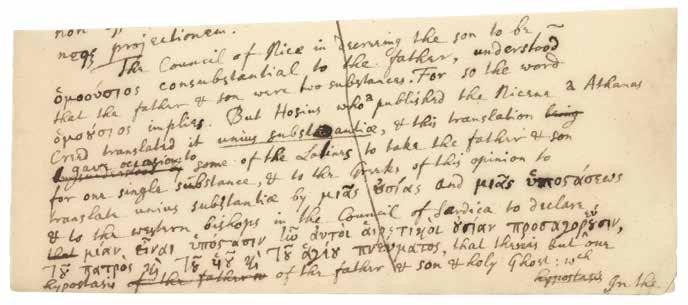 non
neqꝫ projectionem.
The Council of Nice in decreeing the son to be
ὁμοούσιος consubstantial to the father, understood
that the father & son were two substances. For so the word
ὁμοούσιος implies. But Hosius who published the Nicene Athanas
Creed translated it unius substantiæ, & this translation being
gave occasion to some of the Latines to take the father & son
for one single substance, & to the Greeks of this opinion to
translate unius substantiæ by μιᾶς ὐσίας and μιᾶς ὑποσάσεως
& to the western bishops in the Council of Sardica to declare
that μίαν εἶναι ὑπόσασιν
τῦ πατρὸς τῦ ὑῦ τῦ ἁγίυ πνεύματος, that there is but one
hypostasis of the father & son & holy Ghost: wch
hypostasis
In the